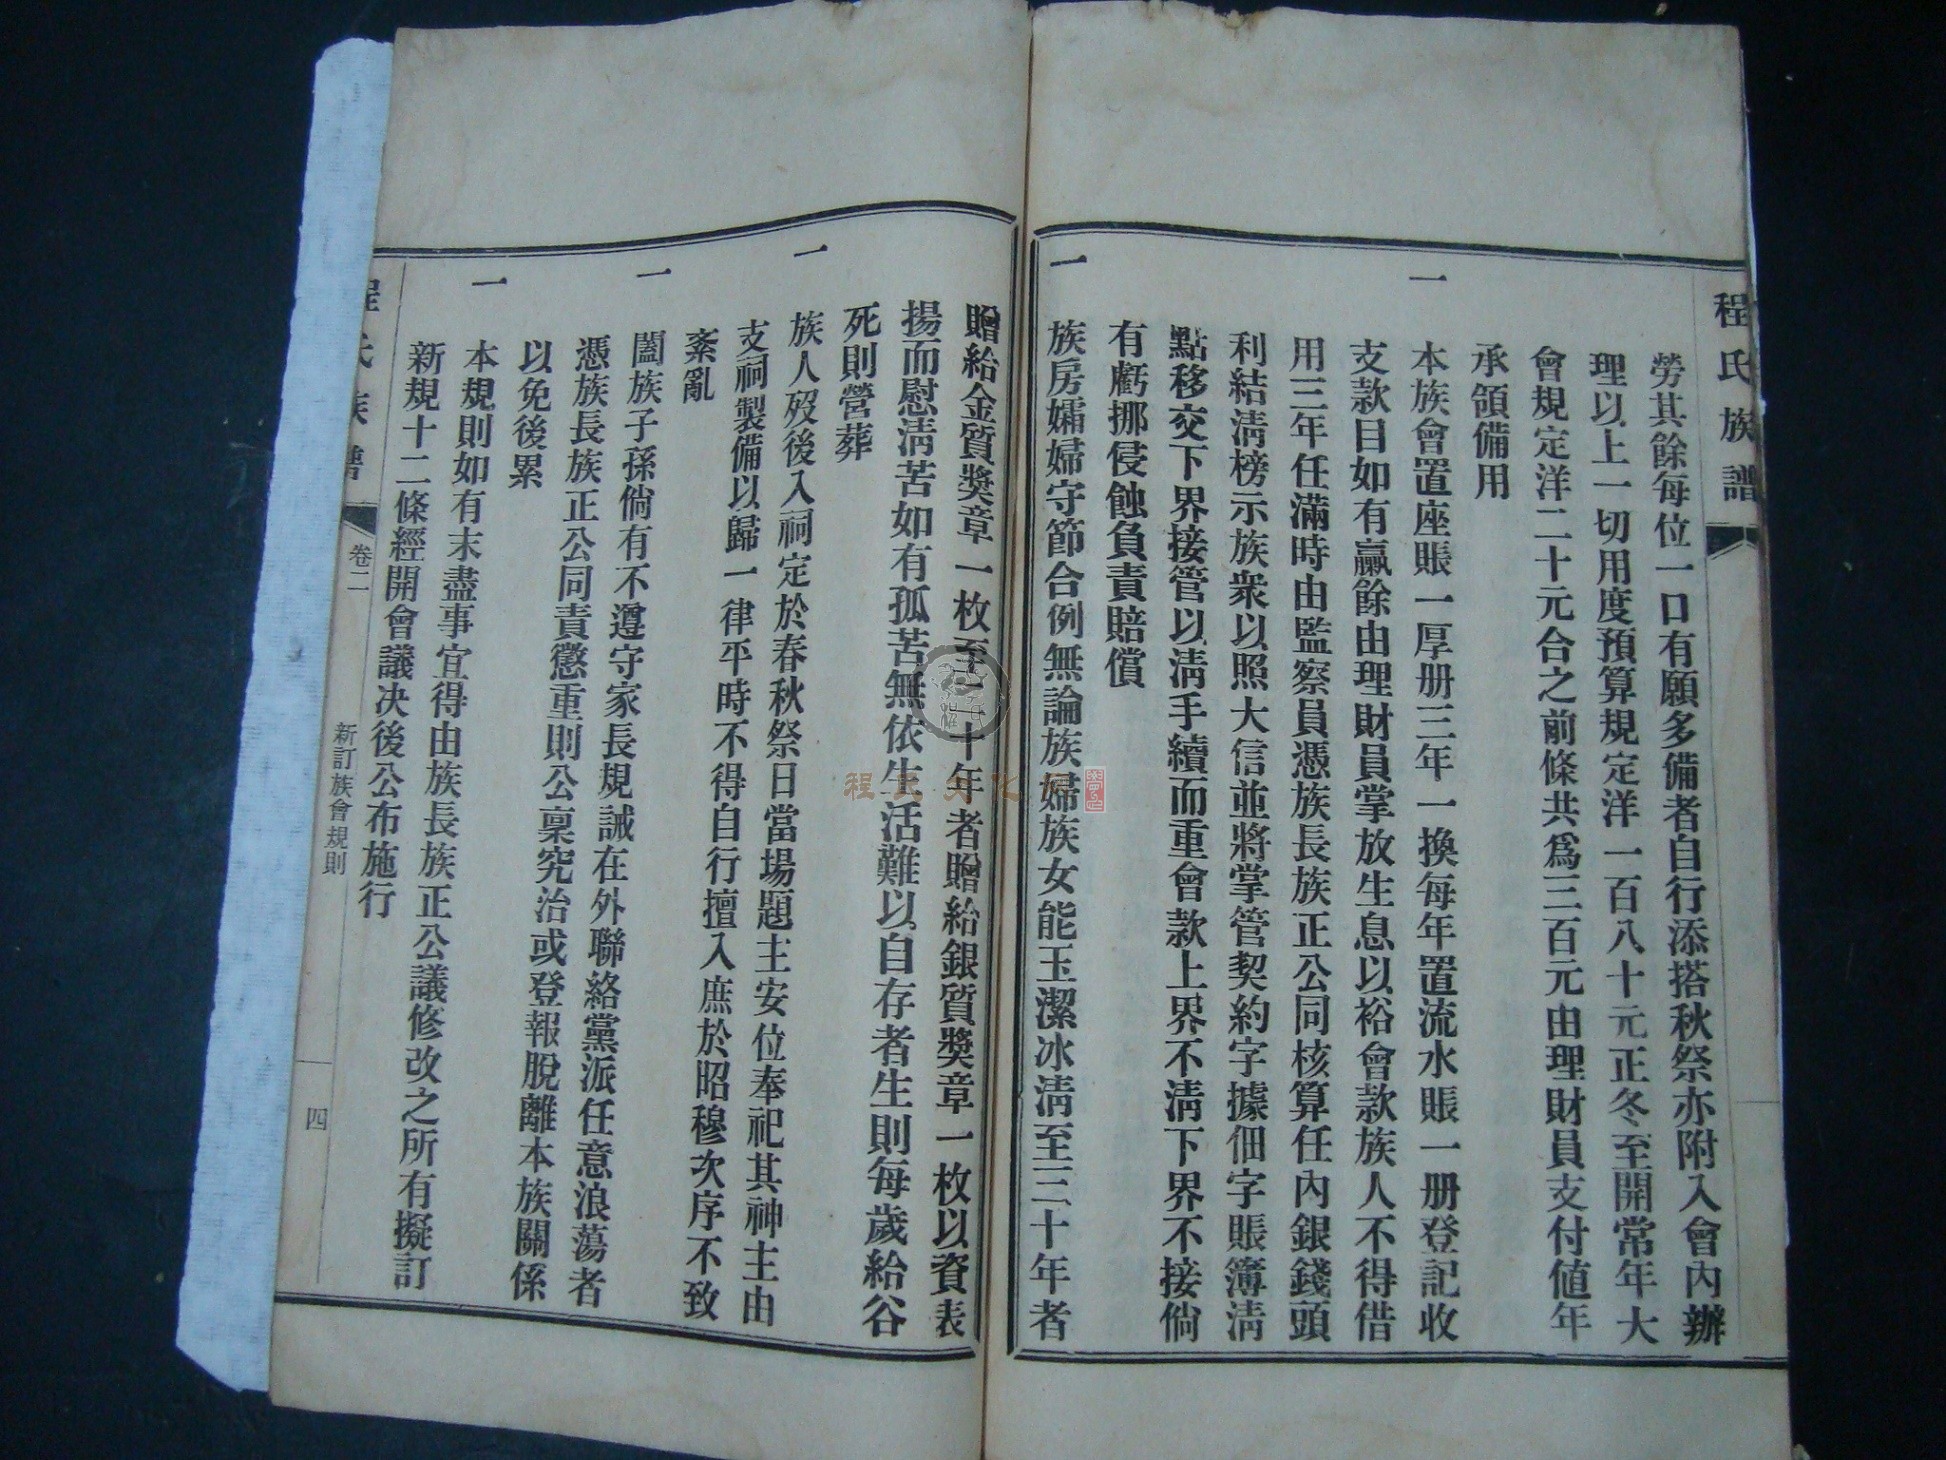 程氏族譜
勞其餘每位一口有願多備者自行添搭秋祭亦附入會內辦
理以上一切用度預算規定洋一百八十元正冬至開常年大
會規定洋二十元合之前條共爲三百元由理財員支付值年
承領備用
一 本族會置座賬一厚册三年一換每年置流水賬一册登記收
支款目如有贏餘由理財員掌放生息以裕會款族人不得借
用三年任滿時由監察員憑族長族正公同核算任內銀錢頭
利結清榜示族衆以照大信並將掌管契約字據佃字賬簿清
點移交下界接管以清手續而重會款上界不清下界不接倘
有虧挪侵蝕負責賠償
一 族房孀婦守節合例無論族婦族女能玉潔冰清至三十年者
贈給金質獎章一枚至二十年者贈給銀質獎章一枚以資表
揚而慰清苦如有孤苦無依生活難以自存者生則每歲給谷
死則營葬
一 族人歿後入祠定於春秋祭日當場題主安位奉祀其神主由
支祠製備以歸一律平時不得自行擅入庶於昭穆次序不致
紊亂
一 闔族子孫倘有不遵守家長規誡在外聯絡黨派任意浪蕩者
憑族長族正公同責懲重則公稟究治或登報脫離本族關係
以免後累
一 本規則如有未盡事宜得由族長族正公議修改之所有擬訂
新規十二條經開會議决後公布施行
程氏族譜 卷二 新訂族會規則 四
程氏文化